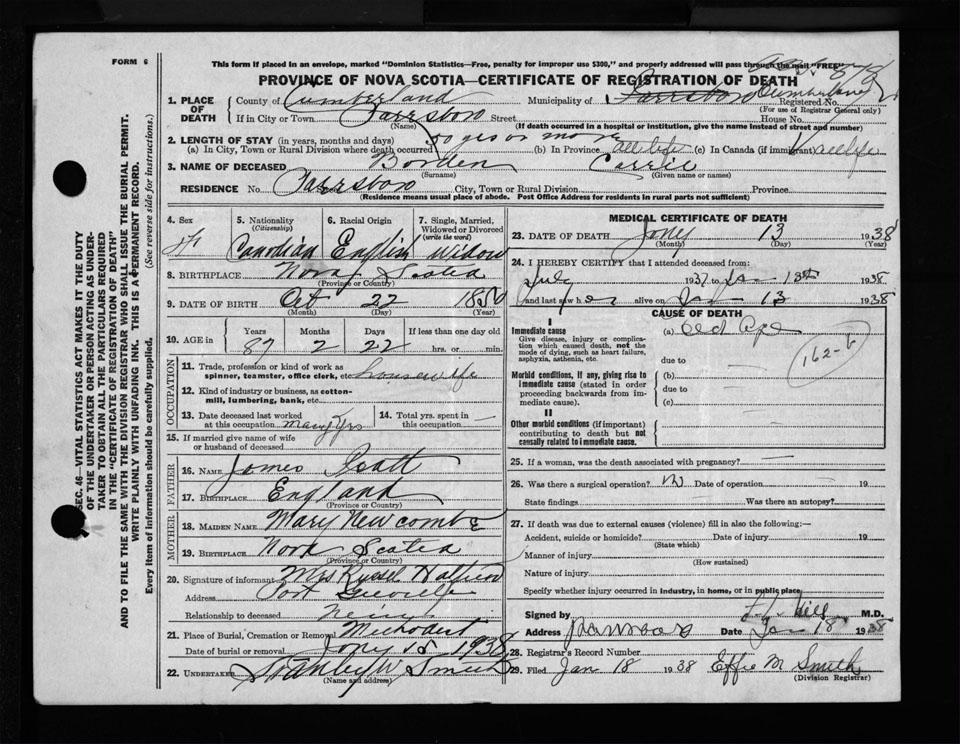 FORM 6
This form if placed in an envelope, marked "Dominion Statistics—Free, penalty for improper use $300," and properly addressed will pass through the mail "FREE"
PROVINCE OF NOVA SCOTIA—CERTIFICATE OF REGISTRATION OF DEATH
1. PLACE OF DEATH
County of Cumberland Municipality of Parrsboro Cumberland Registered No.
(For use of Registrar General only)
If in City or Town Parrsboro Street House No.
(Name) (If death occurred in a hospital or institution, give the name instead of street and number)
2. LENGTH OF STAY (in years, months and days)
(a) In City, Town or Rural Division where death occurred 50 yrs or more (b) In Province all life (c) In Canada (if immigrant) all life
3. NAME OF DECEASED Borden Carrie
(Surname) (Given name or names)
RESIDENCE No. Parrsboro City, Town or Rural Division Province
(Residence means usual place of abode. Post Office Address for residents in rural parts not sufficient)
4. Sex 5. Nationality (Citizenship) 6. Racial Origin 7. Single, Married, Widowed or Divorced (write the word)
F Canadian English Widow
8. BIRTHPLACE Nova Scotia
(Province or Country)
9. DATE OF BIRTH Oct 22 1850
(Month) (Day) (Year)
10. AGE in Years Months Days If less than one day old
87 2 22 hrs. or min.
OCCUPATION
11. Trade, profession or kind of work as spinner, teamster, office clerk, etc. housewife
12. Kind of industry or business, as cotton-mill, lumbering, bank, etc.
13. Date deceased last worked at this occupation many yrs 14. Total yrs. spent in this occupation —
15. If married give name of wife or husband of deceased
FATHER
16. NAME James Scott
17. BIRTHPLACE England
(Province or Country)
MOTHER
18. MAIDEN NAME Mary Newcombe
19. BIRTHPLACE Nova Scotia
(Province or Country)
20. Signature of informant Mrs
Address Port Greville
Relationship to deceased
21. Place of Burial, Cremation or Removal Methodist
Date of burial or removal Jany 15 1938
22. UNDERTAKER Stanley W Smith
(Name and address)
MEDICAL CERTIFICATE OF DEATH
23. DATE OF DEATH Jany 13 1938
(Month) (Day) (Year)
24. I HEREBY CERTIFY that I attended deceased from:
July 1937 to Jan 13th 1938
and last saw her alive on Jan 13 1938
CAUSE OF DEATH
I
Immediate cause (a) Old Age
Give disease, injury or complication which caused death, not the mode of dying, such as heart failure, asphyxia, asthenia, etc. due to
162-b
Morbid conditions, if any, giving rise to immediate cause (stated in order proceeding backwards from immediate cause). (b)
due to
(c)
II
Other morbid conditions (if important) contributing to death but not causally related to immediate cause.
25. If a woman, was the death associated with pregnancy? —
26. Was there a surgical operation? no Date of operation — 19
State findings Was there an autopsy?
27. If death was due to external causes (violence) fill in also the following:—
Accident, suicide or homicide? Date of injury 19
(State which)
Manner of injury
(How sustained)
Nature of injury
Specify whether injury occurred in industry, in home, or in public place
Signed by Hill M.D.
Address Parrsboro Date Jan 18 1938
28. Registrar's Record Number
29. Filed Jan 18 1938 Effie M Smith
(Division Registrar)
SEC. 46—VITAL STATISTICS ACT MAKES IT THE DUTY
OF THE UNDERTAKER OR PERSON ACTING AS UNDER-
TAKER TO OBTAIN ALL THE PARTICULARS REQUIRED
IN THE "CERTIFICATE OF REGISTRATION OF DEATH"
AND TO FILE THE SAME WITH THE DIVISION REGISTRAR WHO SHALL ISSUE THE BURIAL PERMIT.
WRITE PLAINLY WITH UNFADING INK. THIS IS A PERMANENT RECORD.
Every item of information should be carefully supplied. (See reverse side for instructions.)